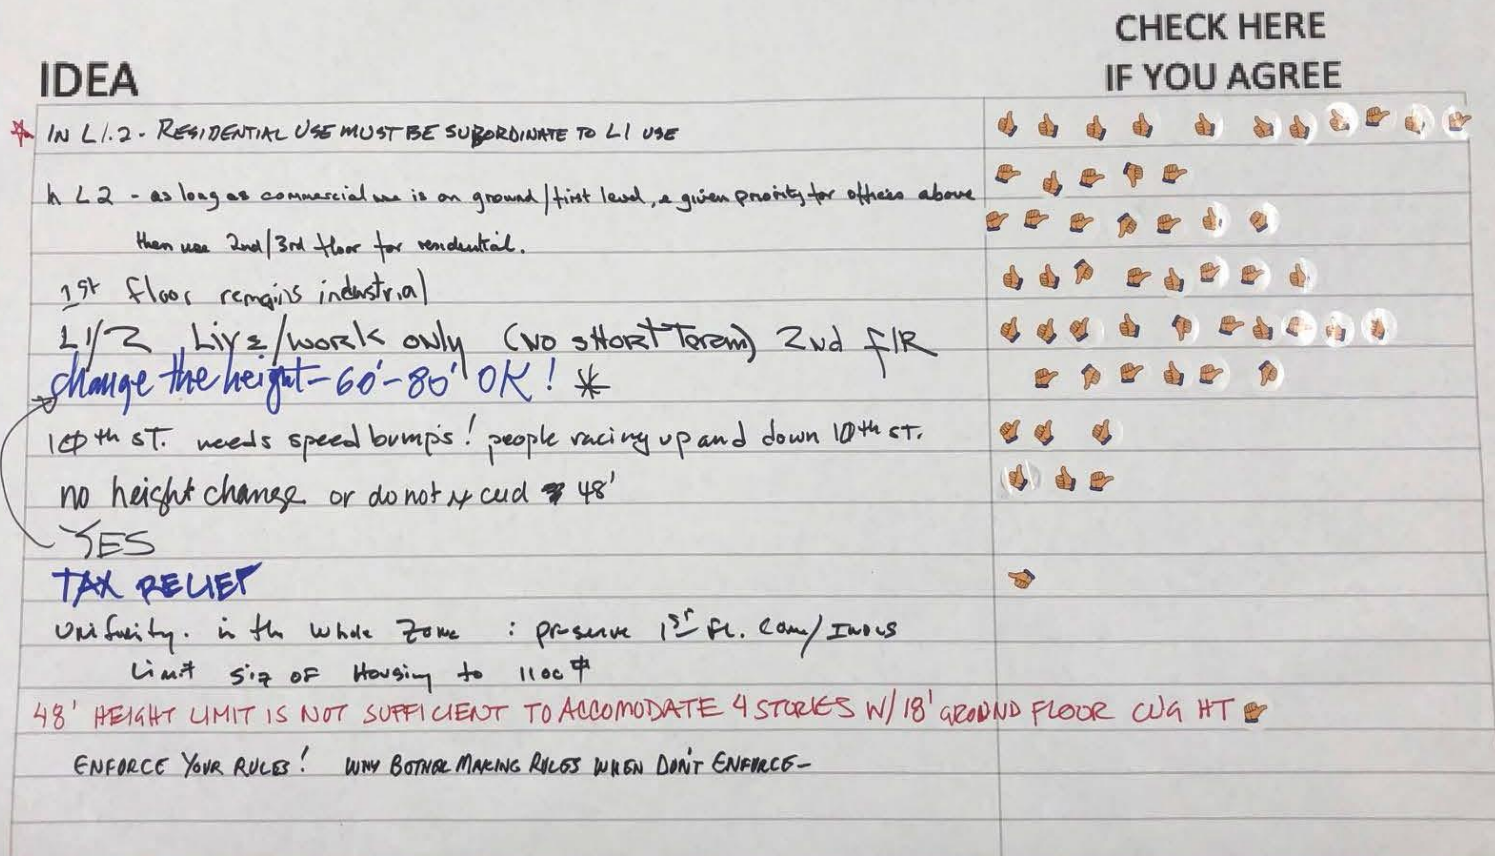 CHECK HERE
IF YOU AGREE
IDEA
IN LI.2 - RESIDENTIAL USE MUST BE SUBORDINATE TO LI USE
L2 - as long as commercial use is on ground/first level, & given priority for offices above
then use 2nd/3rd floor for residential.
1st floor remains industrial
LI/2 Live/work only (NO sHort Term) 2nd flR
change the height - 60'-80' OK! *
10th ST. needs speed bumps! people racing up and down 10th ST.
no height change or do not xceed 48'
YES
TAX RELIEF
Uniformity. in the whole zone : preserve 1st FL. Com/Indus
Limit siz OF Housing to 1100
48' HEIGHT LIMIT IS NOT SUFFICIENT TO ACCOMODATE 4 STORIES W/ 18' GROUND FLOOR CLG HT
ENFORCE YOUR RULES! WHY BOTHER MAKING RULES WHEN DON'T ENFORCE-